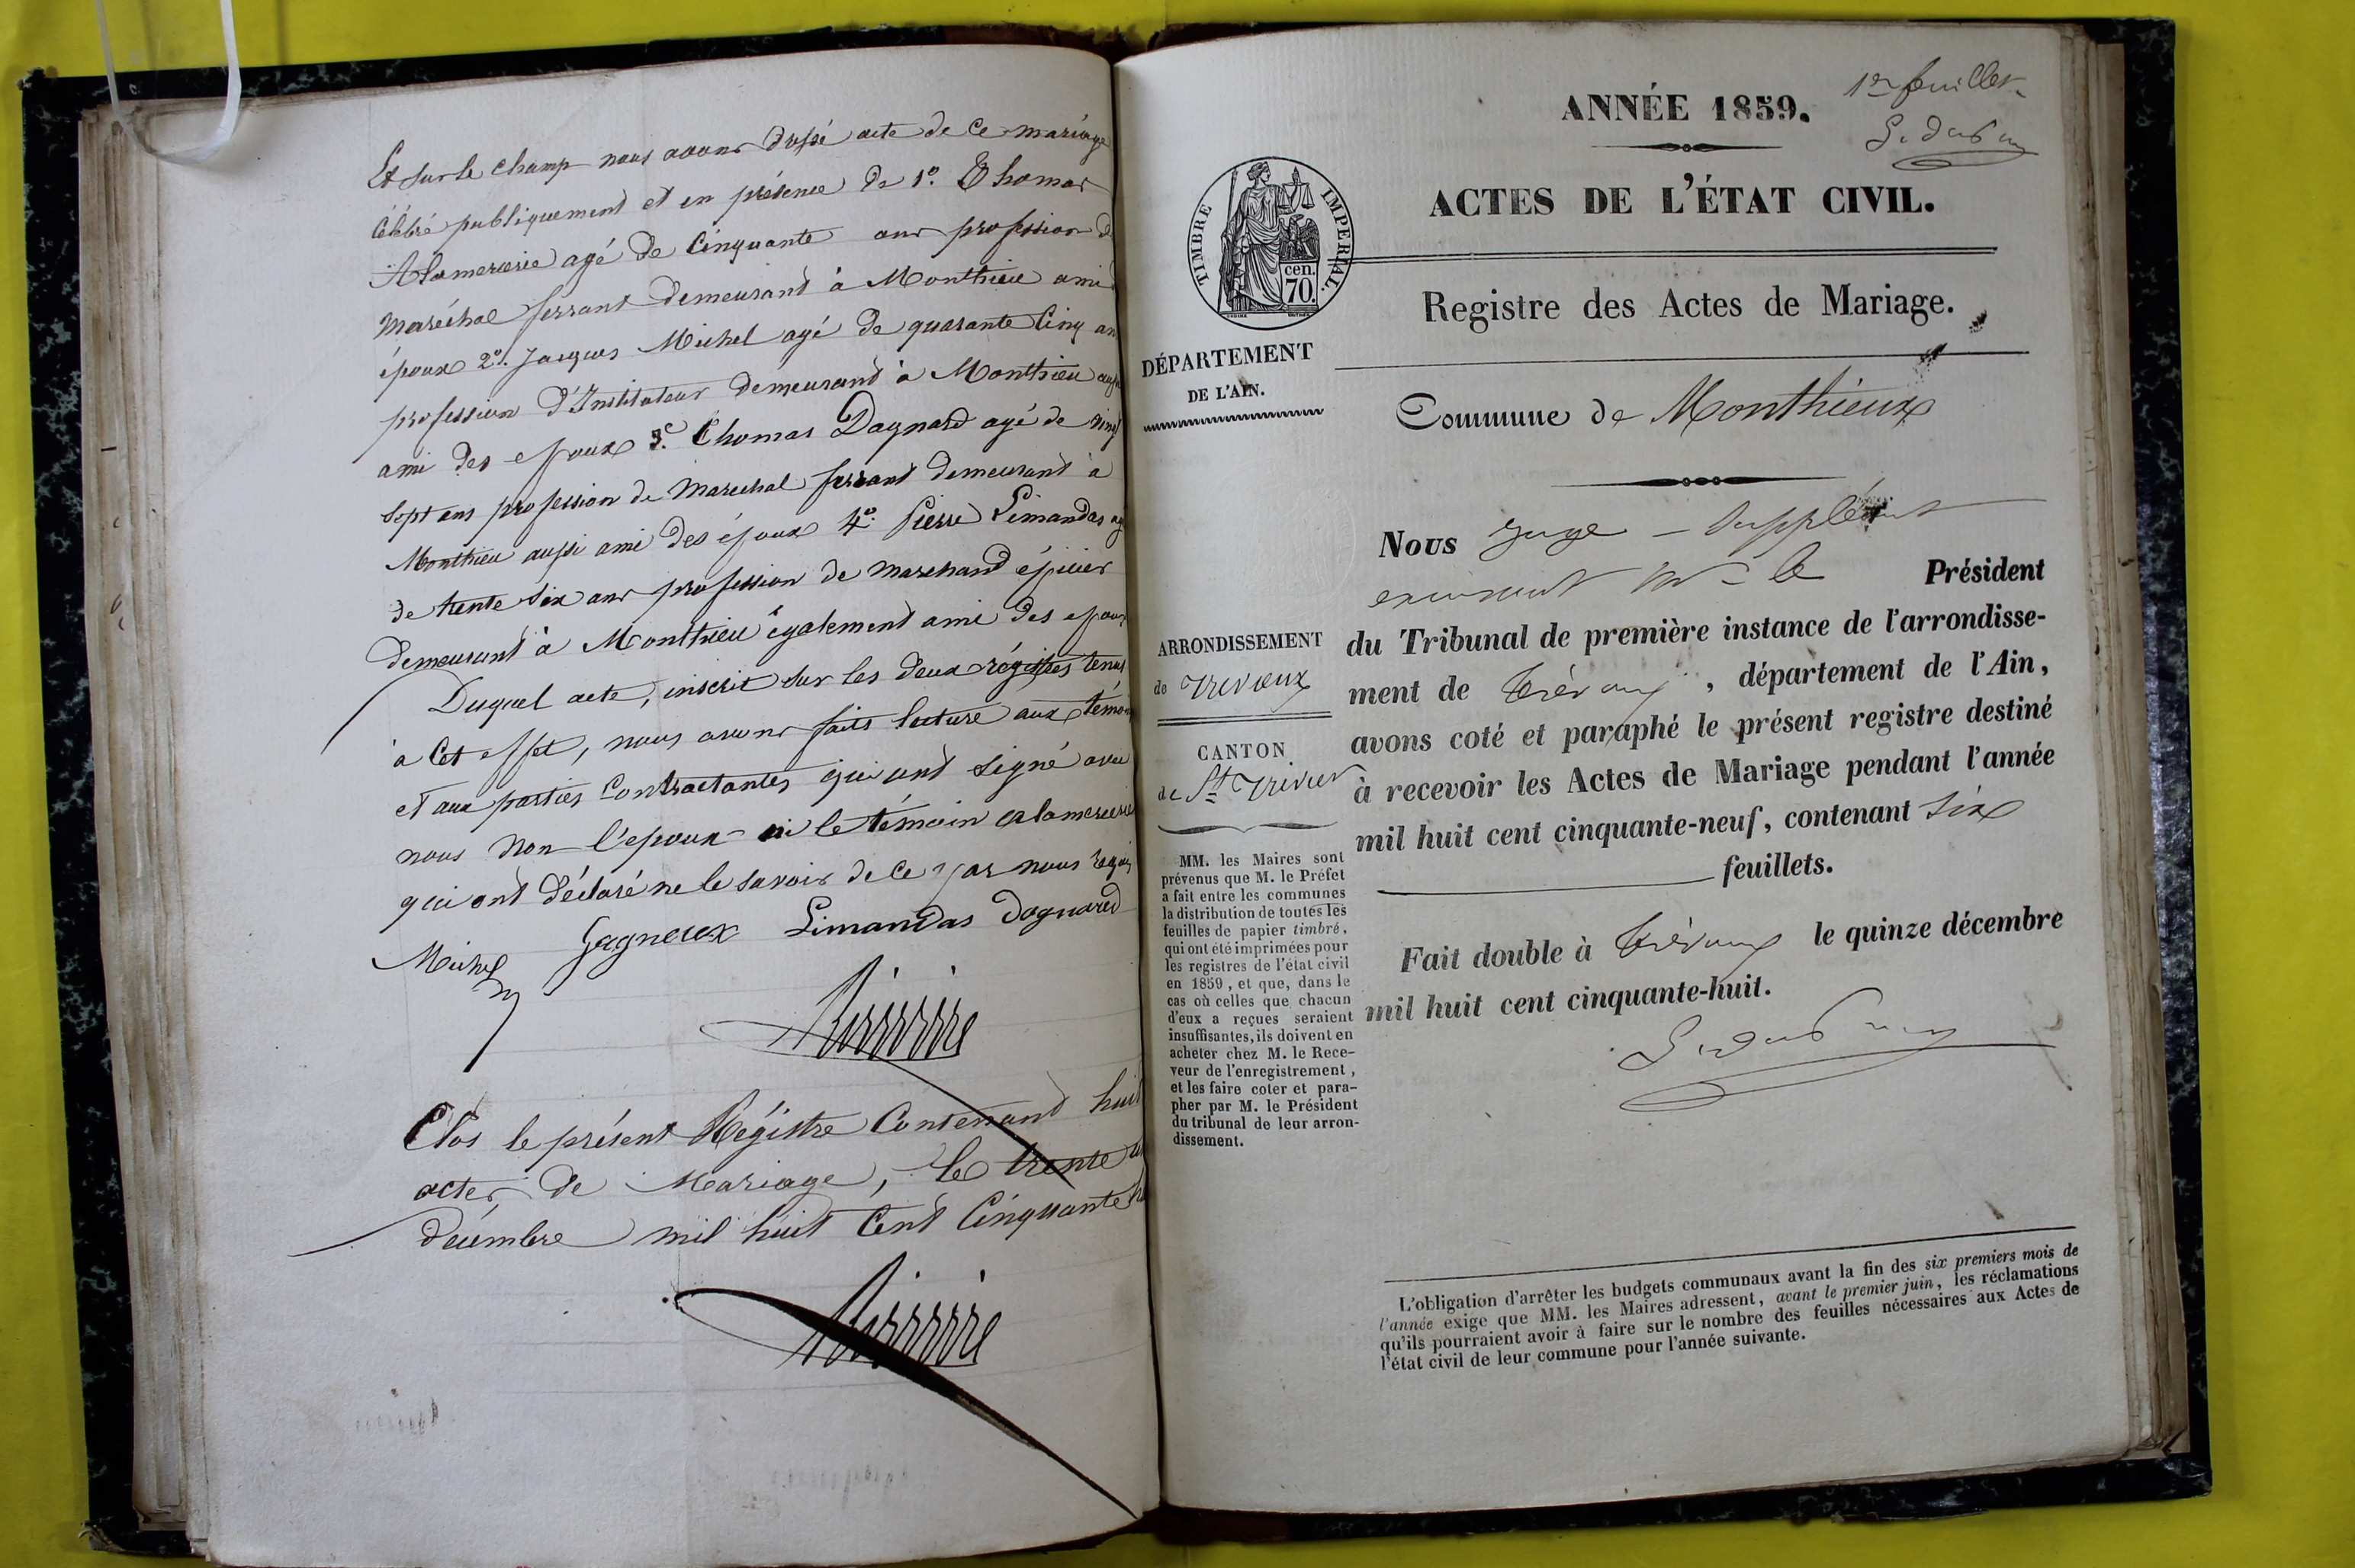 Et sur le champ nous avons dressé acte de ce mariage
célébré publiquement et en présence de 1º. Thomas
Alamercerie agé de Cinquante ans profession d
Maréchal ferrant demeurant à Monthieu ami
époux 2º. Jacques Michel agé de quarante Cinq an
profession d'Instituteur demeurant à Monthieu
ami des epoux 3º. Thomas Dagnard agé de vingt
Sept ans profession de Marechal ferrant demeurant à
Monthieu aussi ami des époux 4º. Pierre Limandas ag
de trente Six ans profession de Marchand épicier
demeurant à Monthieu également ami des epoux
Duquel acte, inscrit sur les deux régistres tenus
à Cet effet, nous avons faits lecture aux témoin
et aux parties Contractantes qui ont signé avec
nous Non l'epoux ni le témoin Alamercerie
qui ont déclaré ne le savoir de ce par nous requis
Michel Gagneux Limandas Dagnard
Clos le présent Régistre Contenant huit
actes de Mariage, le trente u
décembre mil huit Cent Cinquante h
1er feuillet
ANNÉE 1859.
ACTES DE L'ÉTAT CIVIL.
TIMBRE IMPERIAL.
cen.
70.
Registre des Actes de Mariage.
DÉPARTEMENT
DE L'AIN.
Commune de Monthieux
Nous Juge - Suppléant
Mr le Président
ARRONDISSEMENT
de Trévoux
du Tribunal de première instance de l'arrondisse-
ment de Trévoux, département de l'Ain,
avons coté et paraphé le présent registre destiné
CANTON
de St Trivier
à recevoir les Actes de Mariage pendant l'année
mil huit cent cinquante-neuf, contenant Six
feuillets.
MM. les Maires sont
prévenus que M. le Préfet
a fait entre les communes
la distribution de toutes les
feuilles de papier timbré,
qui ont été imprimées pour
les registres de l'état civil
en 1859, et que, dans le
cas où celles que chacun
d'eux a reçues seraient
insuffisantes, ils doivent en
acheter chez M. le Rece-
veur de l'enregistrement,
et les faire coter et para-
pher par M. le Président
du tribunal de leur arron-
dissement.
Fait double à Trévoux le quinze décembre
mil huit cent cinquante-huit.
L'obligation d'arrêter les budgets communaux avant la fin des six premiers mois de
l'année exige que MM. les Maires adressent, avant le premier juin, les réclamations
qu'ils pourraient avoir à faire sur le nombre des feuilles nécessaires aux Actes de
l'état civil de leur commune pour l'année suivante.